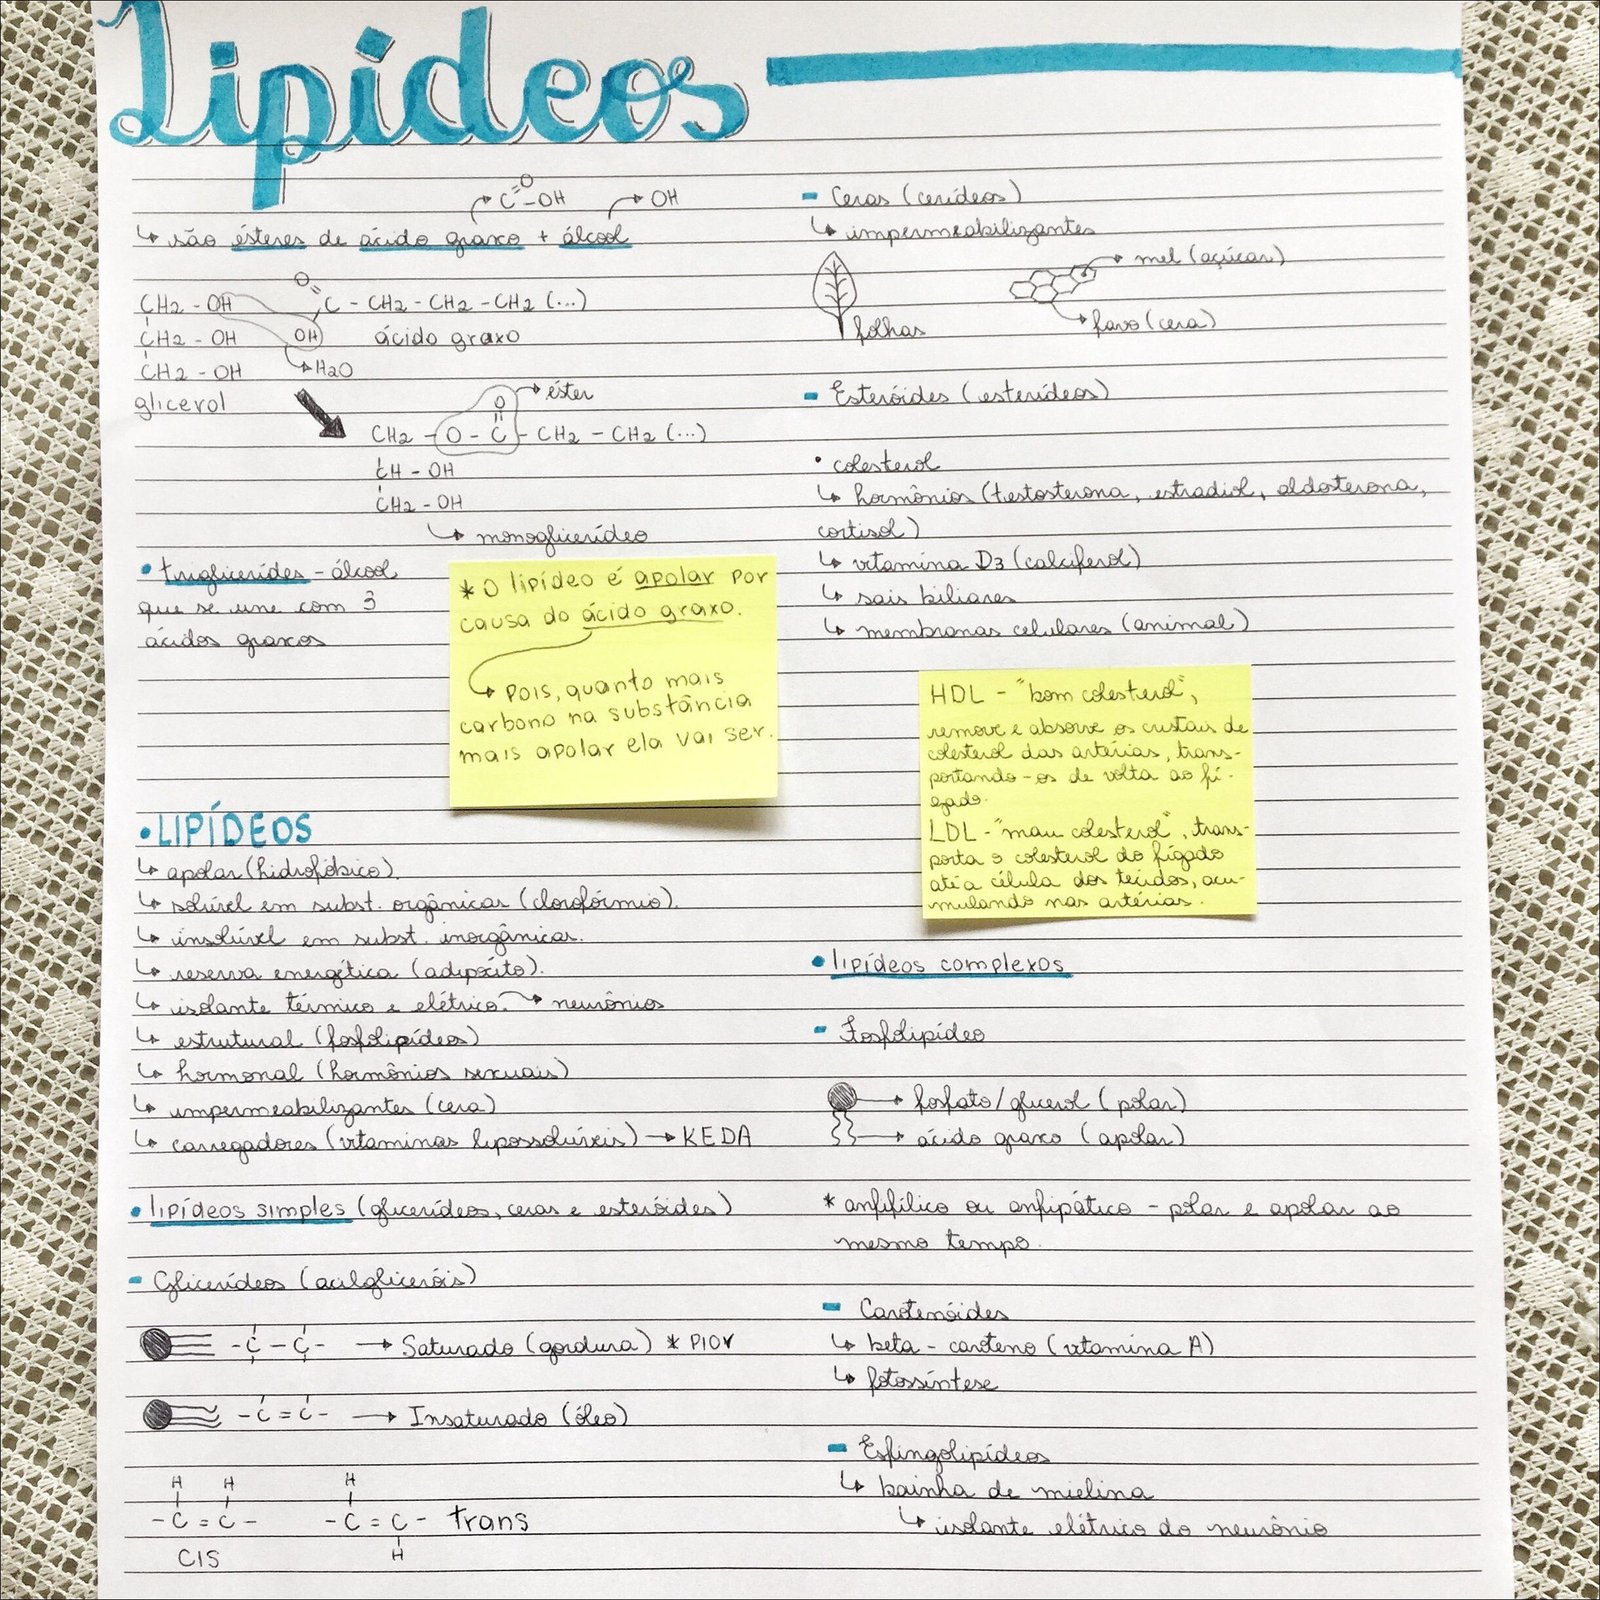 Lipídeos
C=O-OH → OH
↳ são ésteres de ácido graxo + álcool
CH2 - OH
O
C - CH2 - CH2 - CH2 (...)
CH2 - OH
OH
ácido graxo
CH2 - OH
→ H2O
glicerol
O → éster
CH2 - O - C - CH2 - CH2 (...)
CH - OH
CH2 - OH
↳ monoglicerídeo
• triglicerídes - álcool
que se une com 3
ácidos graxos
* O lipídeo é apolar por
causa do ácido graxo.
→ Pois, quanto mais
carbono na substância
mais apolar ela vai ser.
• LIPÍDEOS
↳ apolar (hidrofóbico).
↳ solúvel em subst. orgânicas (clorofórmio).
↳ insolúvel em subst. inorgânicas.
↳ reserva energética (adipócito).
↳ isolante térmico e elétrico. → neurônios
↳ estrutural (fosfolipídeos)
↳ hormonal (hormônios sexuais)
↳ impermeabilizantes (cera)
↳ carregadores (vitaminas lipossolúveis) → KEDA
• lipídeos simples (glicerídeos, ceras e esteróides)
- Glicerídeos (acilgliceróis)
-C-C- → Saturado (gordura) * PIOR
-C=C- → Insaturado (óleo)
H H H
-C=C- -C=C- trans
CIS H
- Ceras (cerídeos)
↳ impermeabilizantes
→ mel (açúcar)
folhas → favo (cera)
- Esteróides (esterídeos)
• colesterol
↳ hormônios (testosterona, estradiol, aldosterona,
cortisol)
↳ vitamina D3 (calciferol)
↳ sais biliares
↳ membranas celulares (animal)
HDL - "bom colesterol",
remove e absorve os cristais de
colesterol das artérias, trans-
portando-os de volta ao fí-
gado.
LDL - "mau colesterol", trans-
porta o colesterol do fígado
até a célula dos tecidos, acu-
mulando nas artérias.
• lipídeos complexos
- Fosfolipídeo
→ fosfato/glicerol (polar)
→ ácido graxo (apolar)
* anfifílico ou anfipático - polar e apolar ao
mesmo tempo.
- Carotenóides
↳ beta-caroteno (vitamina A)
↳ fotossíntese
- Esfingolipídeos
↳ bainha de mielina
↳ isolante elétrico do neurônio